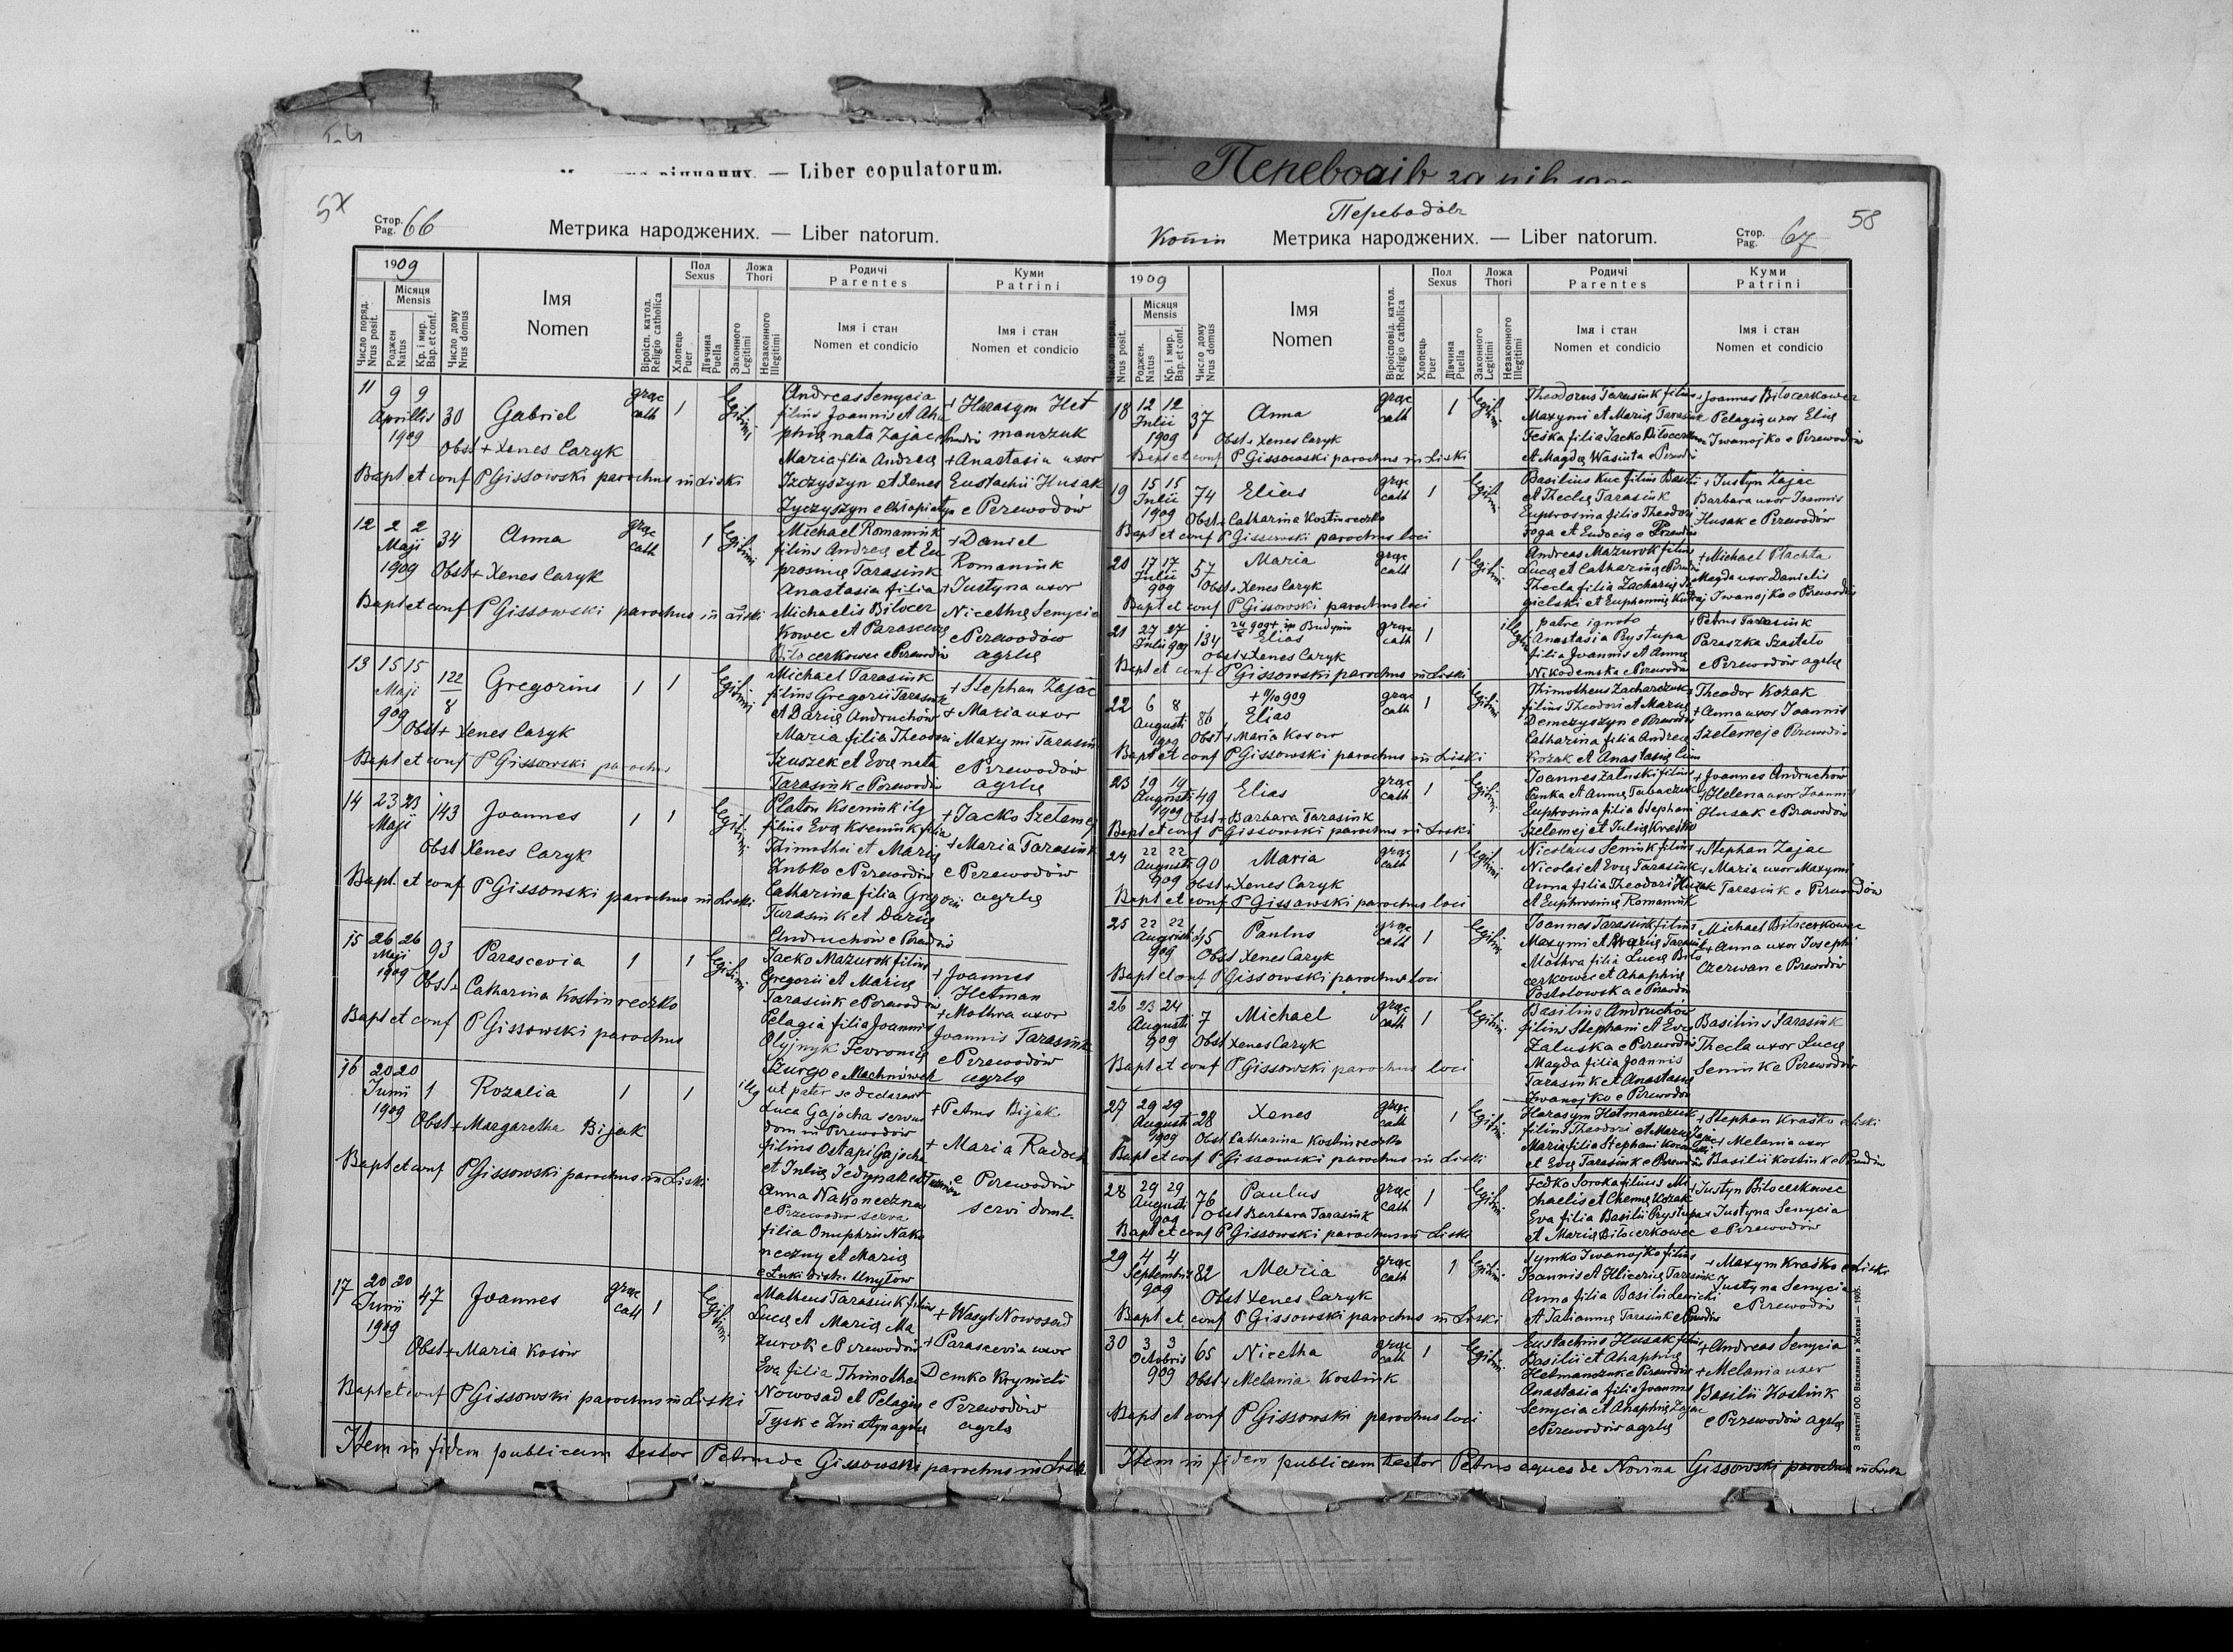 — Liber copulatorum.
57
Стор.
Pag. 66
Метрика народжених. — Liber natorum.
1909
Число поряд.
Nrus posit.
Місяця
Mensis
Роджен
Natus
Кр. і мир.
Bap. et conf.
Число дому
Nrus domus
Імя
Nomen
Віроісп. катол.
Religio catholica
Пол
Sexus
Хлопець
Puer
Дівчина
Puella
Ложа
Thori
Законного
Legitimi
Незаконного
Illegitimi
Родичі
Parentes
Імя і стан
Nomen et condicio
Куми
Patrini
Імя і стан
Nomen et condicio
11 9 9 Aprillis 1909 30 Gabriel graec cath 1 legitimi
Andreas Senycia
filius Joannis et Aha
phią nata Zając
Maria filia Andreę
Iżczyszyn et Xenes
+ Harasym Het
manczuk
+ Anastasia uxor
Eustachii Husak
e Przewodów
Obst + Xenes Caryk
Bapt et conf P Gissowski parochus in Liski
12 2 2 Maji 1909 34 Anna graec cath 1 legitimi
Michael Romaniuk
filius Andreę et Eu
prosinię Tarasiuk
Anastasia filia
Michaelis Bilocer
kowec et Parascevę
Bilocerkowec e Przewodów
+ Daniel
Romaniuk
+ Justyna uxor
Nicethę Senycia
e Przewodów
agrlę
Obst + Xenes Caryk
Bapt et conf P Gissowski parochus in Liski
13 15 15 Maji 909 122/8 Gregorius 1 1 legitimi
Michael Tarasiuk
filius Gregorii Tarasiuk
et Darię Andruchów
Maria filia Theodori
Szuszek et Evę nata
Tarasiuk e Przewodów
+ Stephan Zając
+ Maria uxor
Maxymi Tarasiuk
e Przewodów
agrlę
Obst + Xenes Caryk
Bapt et conf P Gissowski parochus
14 23 23 Maji 143 Joannes 1 1 legitimi
Platon Kseniuk ilg
filius Evę Kseniuk filia
Thimothei et Marię
Zubko e Przewodów
Catharina filia Gregorii
Tarasiuk et Darię
Andruchów e Przewodów
+ Jacko Szelemej
+ Maria Tarasiuk
e Przewodów
agrlę
Obst Xenes Caryk
Bapt. et conf P Gissowski parochus in Liski
15 26 26 Maji 1909 93 Parascevia 1 1 legitimi
Jacko Mazurok filius
Gregorii et Marię
Tarasiuk e Przewodów
Pelagia filia Joannis
Olyjnyk Fevronię
Szurgo e Machnówek
+ Joannes
Hetman
+ Mothra uxor
Joannis Tarasiuk
e Przewodów
agrlę
Obst + Catharina Kostiureczko
Bapt et conf P Gissowski parochus
16 20 20 Junii 1909 1 Rozalia 1 1 illg
ut pater se declaravit
Luca Gajocha servus
dom in Przewodów
filius Ostapi Gajocha
Anna Nakoneczna
e Przewodów serva
filia Onuphrii Nako
neczny et Marię
+ Petrus Bijak
+ Maria
e Przewodów
servi
Obst + Margaretha Bijak
Bapt et conf P Gissowski parochus in Liski
17 20 20 Junii 1909 47 Joannes graec cath 1 legitimi
Matheus Tarasiuk filius
Lucę et Marię Ma
zurok e Przewodów
Eva filia Thimothei
Nowosad et Pelagię
Tysk e Żniatyn agrlę
+ Wasyl Nowosad
+ Parascevia uxor
Demko Krynicki
e Przewodów
agrlę
Obst + Maria Kosów
Bapt et conf P Gissowski parochus in Liski
Item in fidem publicam testor Petrus de Gissowski parochus in Liski
Переводів
58
Метрика народжених. — Liber natorum.
Стор.
Pag. 67
1909
Число поряд.
Nrus posit.
Місяця
Mensis
Роджен.
Natus
Кр. і мир.
Bap. et conf.
Число дому
Nrus domus
Імя
Nomen
Віроісповід. катол.
Religio catholica
Пол
Sexus
Хлопець
Puer
Дівчина
Puella
Ложа
Thori
Законного
Legitimi
Незаконного
Illegitimi
Родичі
Parentes
Імя і стан
Nomen et condicio
Куми
Patrini
Імя і стан
Nomen et condicio
18 12 12 Julii 1909 37 Anna graec cath 1 legitimi
Theodorus Tarasiuk filius
Maxymi et Marię Tarasiuk
Feśka filia Jacko Bilocerkowec
et Magdę Wasiuta e Przewodów
+ Joannes Bilocerkowec
Pelagia uxor Elię
Iwanojko e Przewodów
Obst + Xenes Caryk
Bapt et conf P Gissowski parochus in Liski
19 15 15 Julii 1909 74 Elias graec cath 1 legitimi
Basilius Kuc filius Basilii
et Theclę Tarasiuk
Euphrosina filia Theodori
et Eudocię e Przewodów
+ Justyn Zając
Barbara uxor Joannis
Husak e Przewodów
Obst + Catharina Kostiureczko
Bapt et conf P Gissowski parochus loci
20 17 17 Julii 909 57 Maria graec cath 1 legitimi
Andreas Mazurok filius
Lucę et Catharinę e Przewodów
Thecla filia Zacharię
gielski et Euphemię
+ Michael Plachta
Magda uxor Danielis
Iwanojko e Przewodów
Obst + Xenes Caryk
Bapt et conf P Gissowski parochus loci
21 27 27 Julii 909 134 Elias graec cath 1 illegitimi
patre ignoto
Anastasia Prystupa
filia Joannis et Annę
Nikodemska e Przewodów
+ Petrus Tarasiuk
Paraszka Szastało
e Przewodów agrlę
Obst + Xenes Caryk
Bapt et conf P Gissowski parochus in Liski
22 6 8 Augusti 1909 86 + 11/10 909 Elias graec cath 1 legitimi
Thimotheus Zacharczuk
filius Theodori et Marię
Demczyszyn e Przewodów
Catharina filia Andreę
Kozak et Anastasię
Theodor Kozak
+ Anna uxor Joannis
Szelemej e Przewodów
Obst + Maria Kosow
Bapt et conf P Gissowski parochus in Liski
23 19 19 Augusti 1909 49 Elias graec cath 1 legitimi
Joannes Załuski filius
et Annę Tabaczuk
Euphrosina filia Stephani
Szelemej et Julię Kraśko
+ Joannes Andruchów
+ Helena uxor Joannis
Husak e Przewodów
Obst + Barbara Tarasiuk
Bapt et conf P Gissowski parochus in Liski
24 22 22 Augusti 909 90 Maria graec cath 1 legitimi
Nicolaus Seniuk filius
Nicolai et Evę Tarasiuk
Anna filia Theodori Husak
et Euphrosinę Romaniuk
+ Stephan Zając
+ Maria uxor Maxymi
Tarasiuk e Przewodów
Obst + Xenes Caryk
Bapt et conf P Gissowski parochus loci
25 22 22 Augusti 909 45 Paulus graec cath 1 legitimi
Joannes Tarasiuk filius
Maxymi et Marię Tarasiuk
Mothra filia Lucę Bilo
cerkowec et Ahaphię
Postolowska e Przewodów
Michael Bilocerkowec
+ Anna uxor Josephi
Czerwan e Przewodów
Obst Xenes Caryk
Bapt et conf P Gissowski parochus loci
26 23 24 Augusti 909 7 Michael graec cath 1 legitimi
Basilius Andruchów
filius Stephani et Evę
Zaluska e Przewodów
Magda filia Joannis
Tarasiuk et Anastasię
Iwanojko e Przewodów
Basilius Tarasiuk
Thecla uxor Lucę
Seniuk e Przewodów
Obst Xenes Caryk
Bapt et conf P Gissowski parochus loci
27 29 29 Augusti 1909 28 Xenes graec cath 1 legitimi
Harasym Hetmanczuk
filius Theodori et Marię Zając
Maria filia Stephani
et Evę Tarasiuk e Przewodów
+ Stephan Kraśko e Liski
+ Melania uxor
Basilii Kostiuk e Przewodów
Obst Catharina Kostiureczko
Bapt et conf P Gissowski parochus in Liski
28 29 29 Augusti 909 76 Paulus graec cath 1 legitimi
Fedko Soroka filius Mi
chaelis et Chemę Kozak
Eva filia Basilii Prystupa
et Marię Bilocerkowec
+ Justyn Bilocerkowec
+ Justyna Senycia
e Przewodów
Obst Barbara Tarasiuk
Bapt et conf P Gissowski parochus in Liski
29 4 4 Septembris 909 82 Maria graec cath 1 legitimi
Tymko Iwanojko filius
Joannis et Hlicerię Tarasiuk
Anna filia Basilii Lewicki
et Tatiannę Tarasiuk e Przewodów
+ Maxym Kraśko e Liski
Justyna Senycia
e Przewodów
Obst Xenes Caryk
Bapt et conf P Gissowski parochus in Liski
30 3 3 Octobris 909 65 Nicetha graec cath 1 legitimi
Eustachius Husak filius
Basilii et Ahaphię
Hetmanczuk e Przewodów
Anastasia filia Joannis
Senycia et Ahaphię Zając
e Przewodów agrlę
+ Andreas Senycia
+ Melania uxor
Basilii Kostiuk
e Przewodów agrlę
Obst + Melania Kostiuk
Bapt et conf P Gissowski parochus loci
Item in fidem publicam testor Petrus eques de Novina Gissowski parochus in Liski
З печатні ОО. Василиян в Жовкві — 1905.